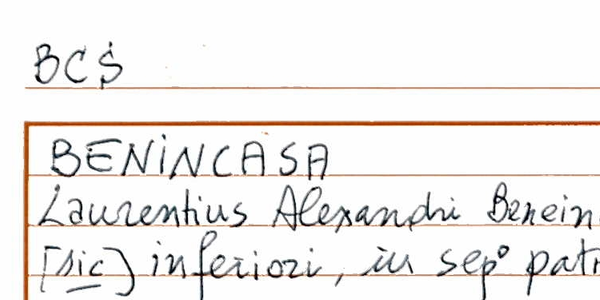 BCS
BENINCASA
Laurentius Alexandri Benein
[sic] inferiori, in sepº patr